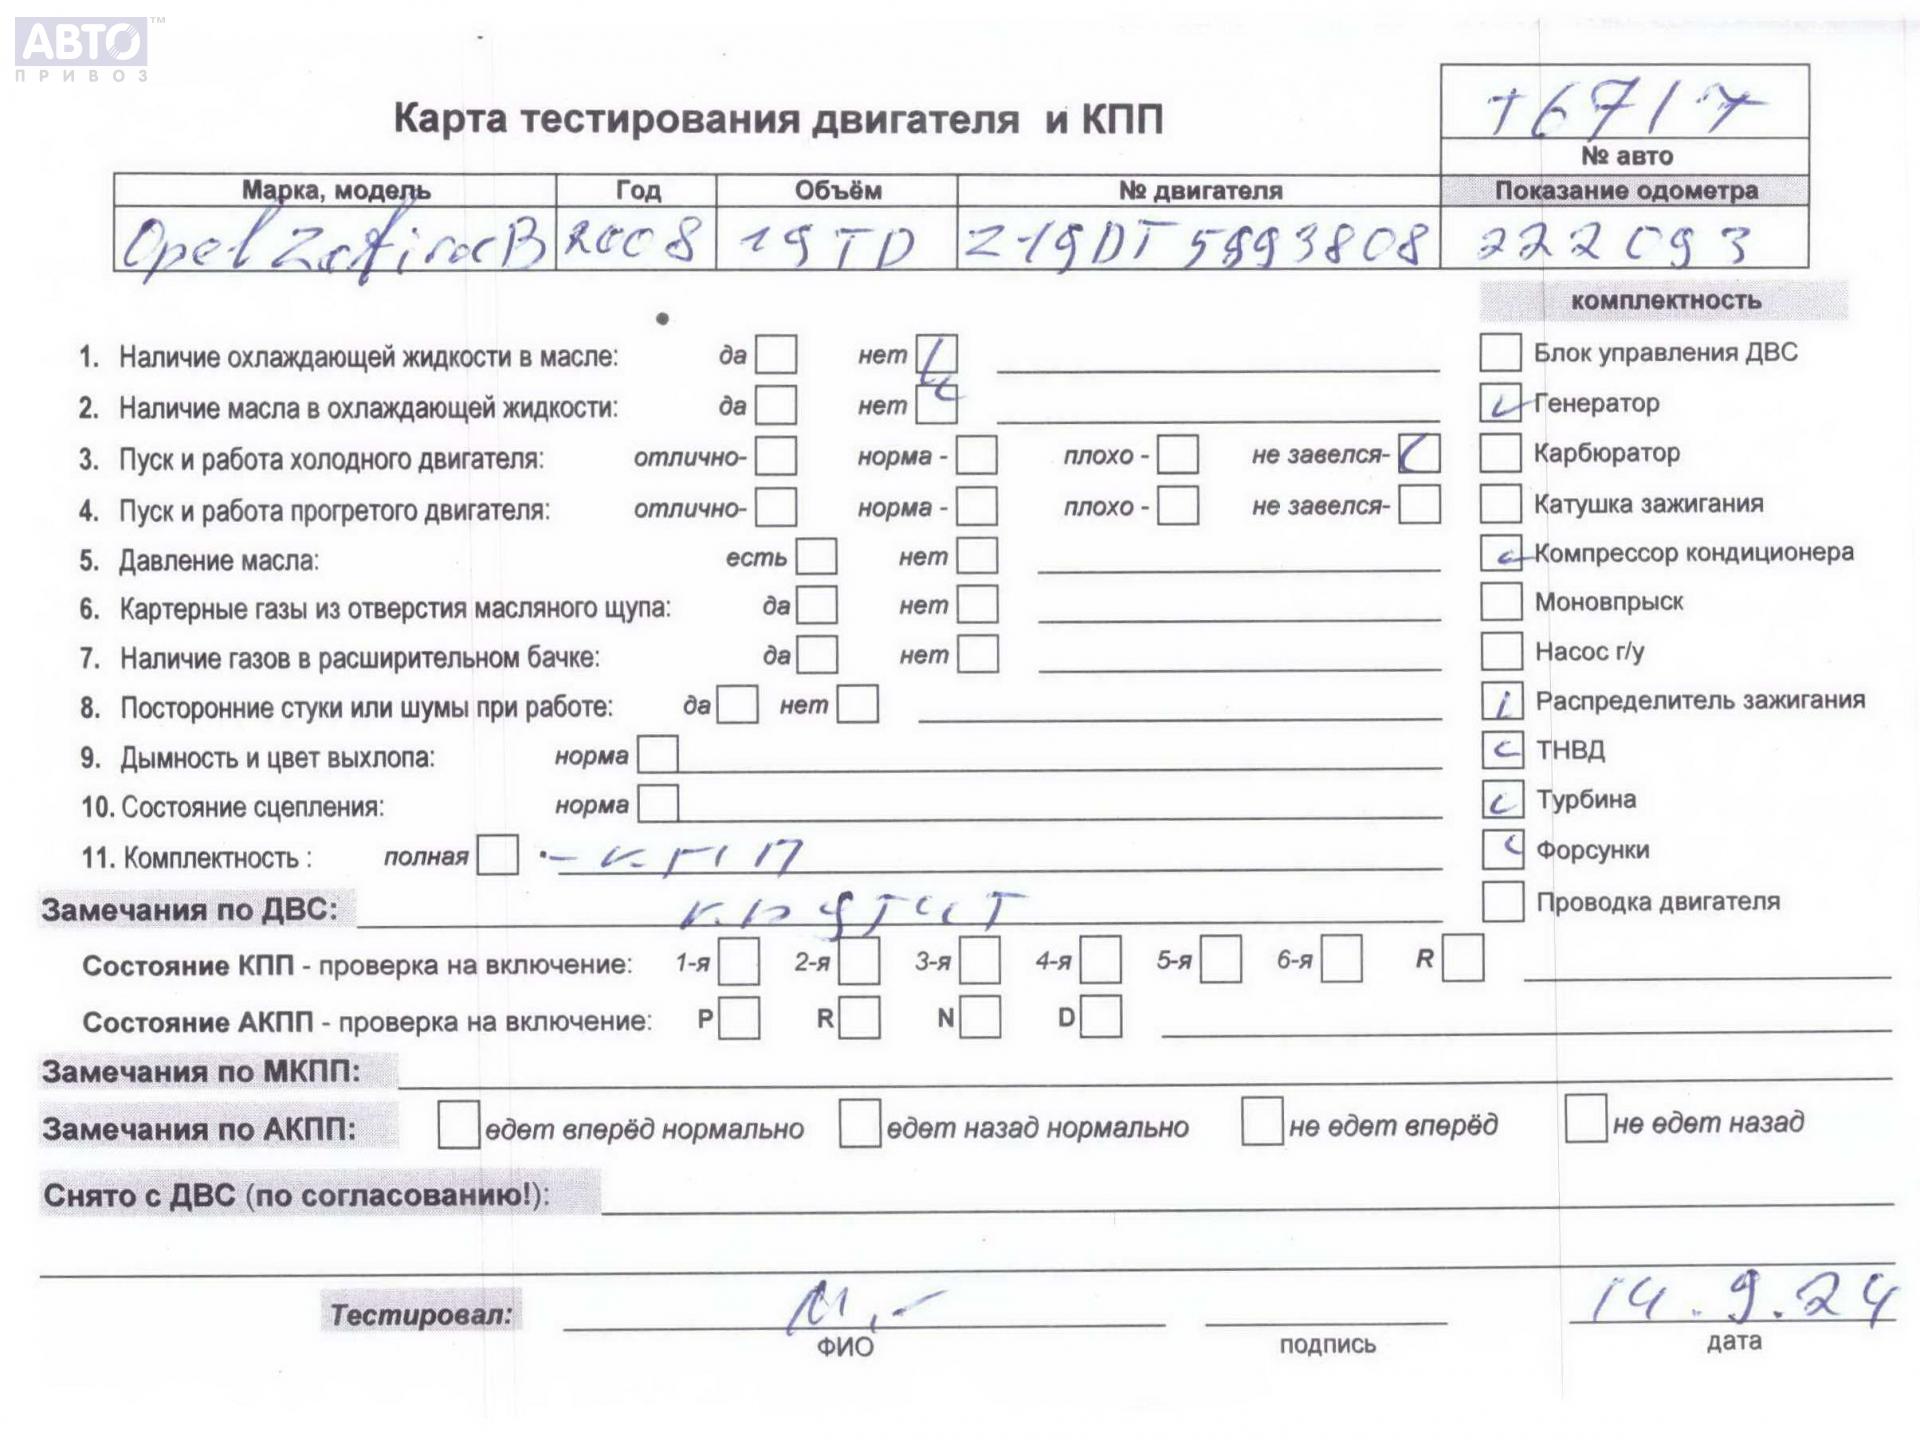 АВТО™
ПРИВОЗ
Карта тестирования двигателя и КПП
76717
№ авто
Марка, модель Год Объём № двигателя Показание одометра
Opel Zafira B 2008 19TD Z19DT5993808 222093
комплектность
1. Наличие охлаждающей жидкости в масле: да нет
Блок управления ДВС
2. Наличие масла в охлаждающей жидкости: да нет
Генератор
3. Пуск и работа холодного двигателя: отлично- норма - плохо - не завелся-
Карбюратор
4. Пуск и работа прогретого двигателя: отлично- норма - плохо - не завелся-
Катушка зажигания
5. Давление масла: есть нет
Компрессор кондиционера
6. Картерные газы из отверстия масляного щупа: да нет
Моновпрыск
7. Наличие газов в расширительном бачке: да нет
Насос г/у
8. Посторонние стуки или шумы при работе: да нет
Распределитель зажигания
9. Дымность и цвет выхлопа: норма
ТНВД
10. Состояние сцепления: норма
Турбина
11. Комплектность : полная - КПП
Форсунки
Замечания по ДВС: крутит
Проводка двигателя
Состояние КПП - проверка на включение: 1-я 2-я 3-я 4-я 5-я 6-я R
Состояние АКПП - проверка на включение: P R N D
Замечания по МКПП:
Замечания по АКПП: едет вперёд нормально едет назад нормально не едет вперёд не едет назад
Снято с ДВС (по согласованию!):
Тестировал: 14.9.24
ФИО подпись дата